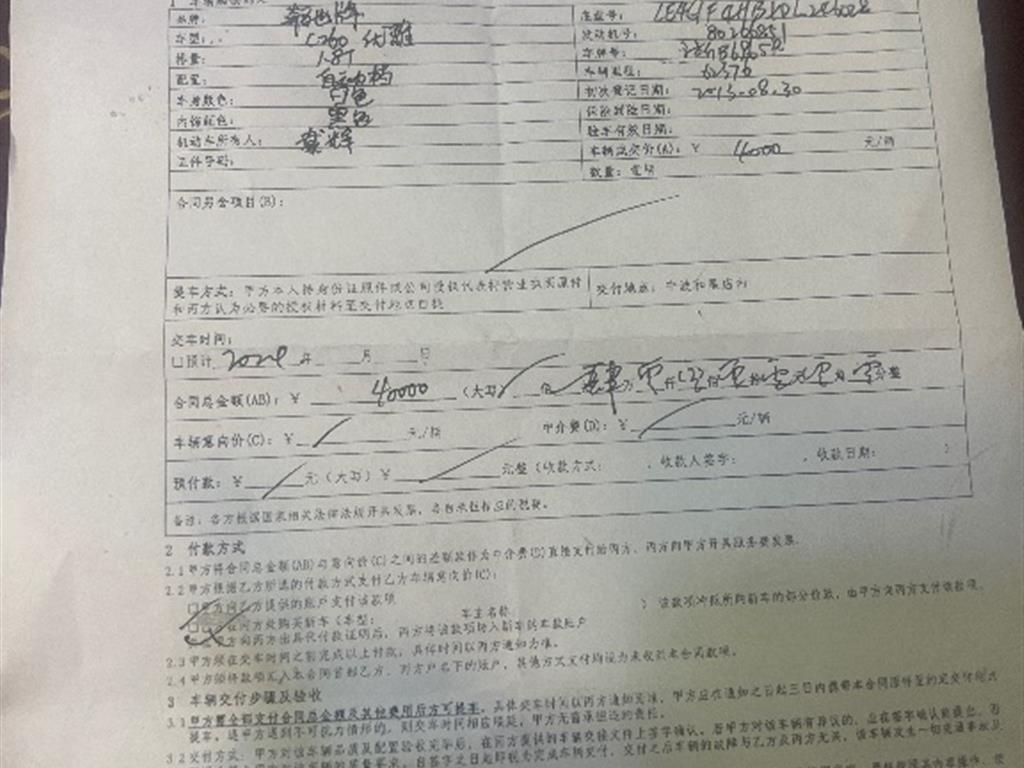 品牌：
车型： C260 优雅
排量： 1.8T
配置： 自动档
车身颜色： 白色
内饰颜色： 黑色
机动车所有人：
证件号码：
底盘号：
发动机号：
车牌号：
车辆里程： 62376
初次登记日期： 2013.08.30
保险到险日期：
验车有效日期：
车辆成交价(A)：￥ 40000 元/辆
数量：壹辆
合同另含项目(B)：
提车方式：甲方本人持身份证原件或公司授权代表持营业执照原件
和丙方认为必要的授权材料至交付地点自提
交付地点：宁波和展店内
交车时间：
□预计 2024 年 月 日
合同总金额(AB)：￥ 40000 （大写） 佰 肆万 零仟 零佰 零拾 零元 零角 零分整
车辆意向价(C)：￥ 元/辆 中介费(D)：￥ 元/辆
预付款：￥ 元（大写）￥ 元整（收款方式： ，收款人签字： ，收款日期： ）
备注：各方根据国家相关法律法规开具发票，各自承担相应的税费。
2 付款方式
2.1 甲方将合同总金额(AB)与意向价(C)之间的差额款作为中介费(D)直接支付给丙方，丙方向甲方开具服务费发票。
2.2 甲方根据乙方所选的付款方式支付乙方车辆意向价(C)：
□甲方向乙方提供的账户支付该款项
在丙方处购买新车（车型： 车主名称 ）该款项冲抵所购新车的部分价款，由甲方向丙方支付该款项。
方向丙方出具代付款证明后，丙方将该款项转入新车的车款账户
2.3 甲方须在交车时间之前完成以上付款，具体时间以丙方通知为准。
2.4 甲方须将款项汇入本合同首部乙方、丙方户名下的账户，其他方式支付均视为未收到本合同款项。
3 车辆交付步骤及验收
3.1 甲方需全额支付合同总金额及其他费用后方可提车。具体交车时间以丙方通知为准，甲方应在通知之日起三日内携带本合同原件至约定交付地点
提车。遇甲方遇到不可抗力情形的，则交车时间相应顺延，甲方无需承担违约责任。
3.2 交付方式：甲方对该车辆品质及配置验收完毕后，在丙方提供的车辆交接文件上签字确认。若甲方对该车辆有异议的，应在签字确认前提出，否
自签字之日起即视为完成车辆交付，交付之后车辆的故障与乙方及丙方无关，该车辆发生一切交通事故及